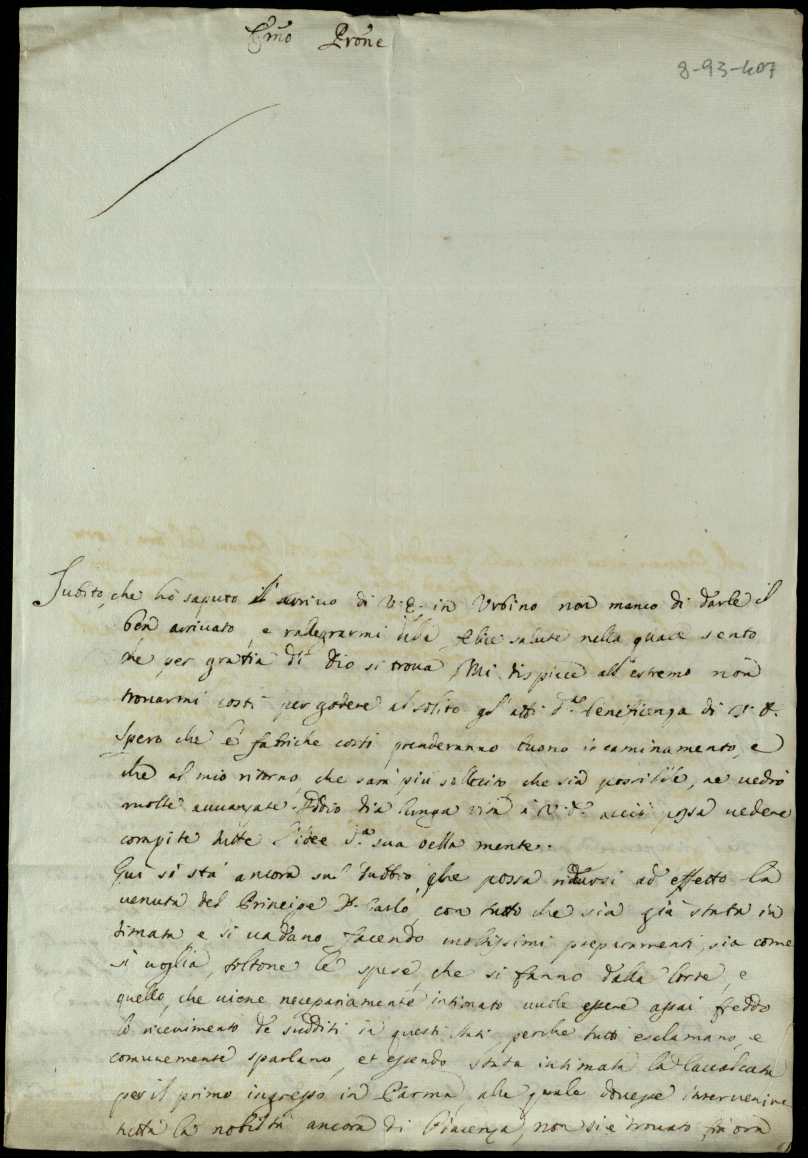 Emo Prone
8-93-407
Subito, che hò saputo l'arrivo di V. E. in Urbino non manco di darle il
ben arrivato, e rallegrarmi della felice salute nella quale sento
che per gratia di Dio si trova. Mi dispiace all'estremo non
trovarmi costì per godere al solito gl'atti d.ª beneficenza di V. E.
Spero che le fabriche costì prenderanno buono incaminamento, e
che al mio ritorno, che sarà più sollecito che sia possibile, ne vedrò
molte avvanzate. Iddio dia lunga vita à V. E. acciò possa vedere
compite tutte l'idee d.ª sua bella mente.
Qui si stà ancora sul dubbio, che possa ridursi ad effetto la
venuta del Principe D. Carlo, con tutto che sia già stata in
timata e si vadano facendo moltissimi preparamenti, sia come
si voglia, toltone le spese, che si fanno dalla Corte, e
quello, che viene necessariamente intimato vuole essere assai freddo
lo ricevimento de sudditi in questi stati, perche tutti esclamano, e
comunemente sparlano, et essendo stata intimata la Cavalcata
per il primo ingresso in Parma, alla quale dovesse intervenire
tutta la nobiltà ancora di Piacenza, non si è trovato fin ora